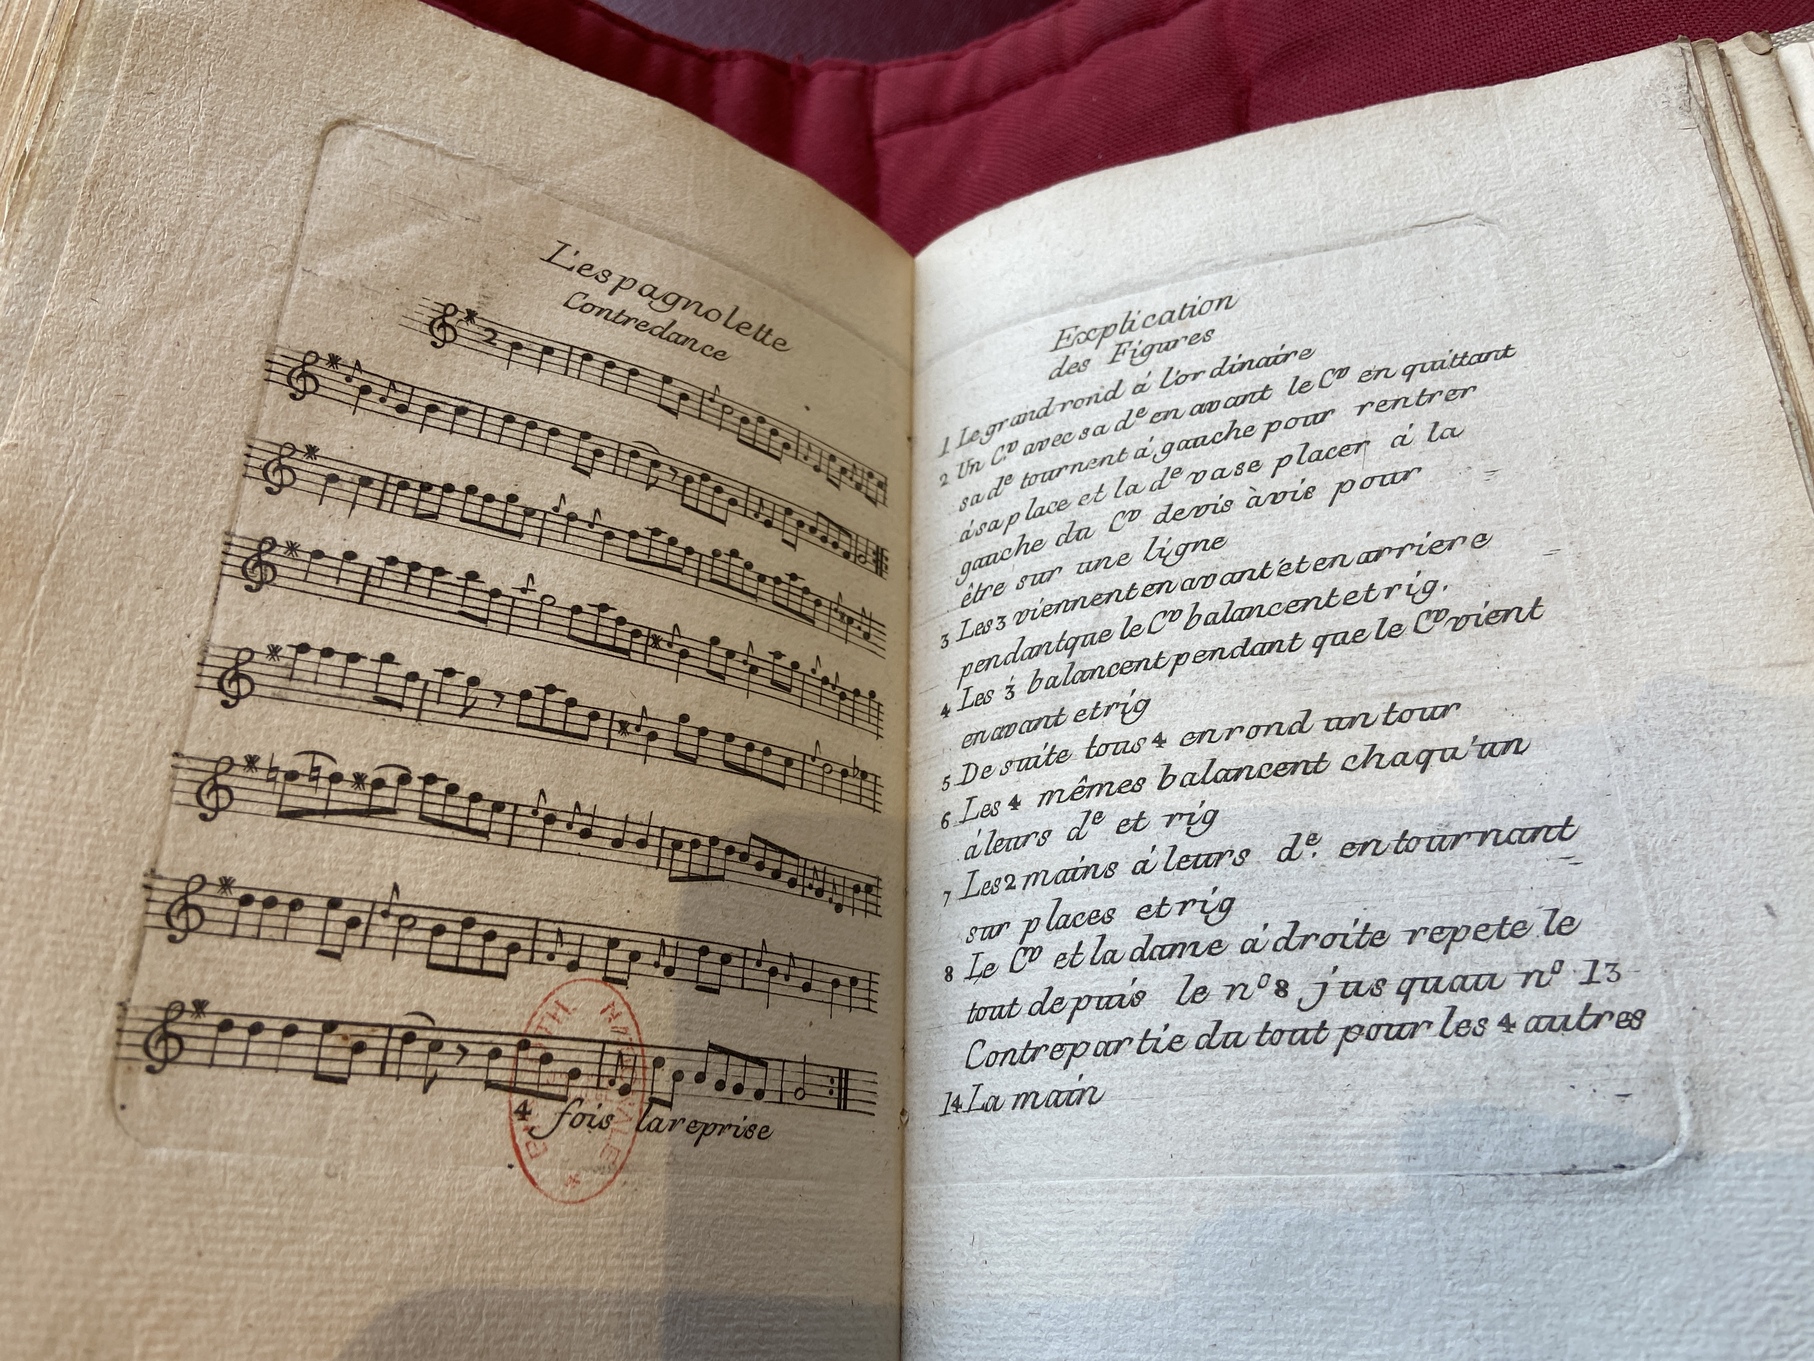 L'espagnolette
Contredance
2
4 fois la reprise
Explication
des Figures
1 Le grand rond á l'ordinaire
2 Un Cᵛ avec sa dᵉ en avant le Cᵛ en quittant
sa dᵉ tournent á gauche pour rentrer
á sa place et la dᵉ va se placer á la
gauche du Cᵛ devis àvis pour
être sur une ligne
3 Les 3 viennent en avant ét en arriere
pendant que le Cᵛ balancent et rig.
4 Les 3 balancent pendant que le Cᵛ vient
en avant et rig
5 De suite tous 4 en rond un tour
6 Les 4 mêmes balancent chaqu'un
á leurs dᵉ et rig
7 Les 2 mains á leurs dᵉ. en tournant
sur places et rig
8 Le Cᵛ et la dame á droite repete le
tout depuis le nº 8 jusquau nº 13
Contrepartie du tout pour les 4 autres
14 La main